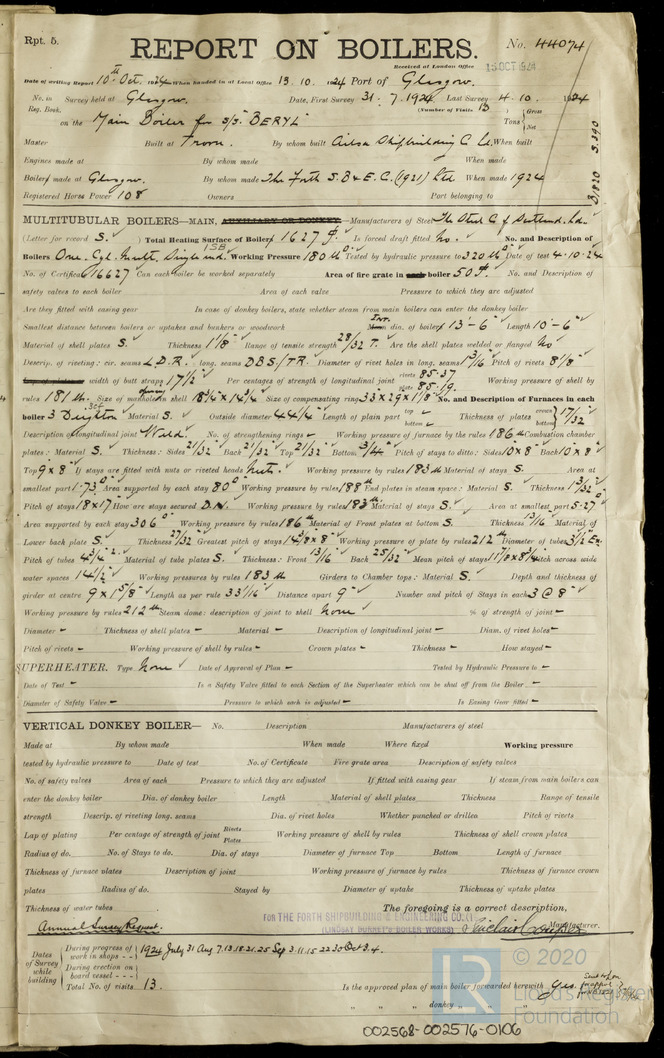 Rpt. 5.
REPORT ON BOILERS.
No. 44074
Received at London Office 15 OCT 1924
Date of writing Report 10th Oct. 1924 When handed in at Local Office 13. 10. 1924 Port of Glasgow.
No. in Reg. Book. Survey held at Glasgow. Date, First Survey 31. 7. 1924 Last Survey 4. 10. 1924
(Number of Visits 13
on the Main Boiler for S/S. "BERYL" Tons Gross Net
Master Built at Troon. By whom built Ailsa Shipbuilding Co Ld. When built
Engines made at By whom made When made
Boilers made at Glasgow. By whom made The Forth S.B & E. C. (1921) Ltd. When made 1924
Registered Horse Power 108 Owners Port belonging to
MULTITUBULAR BOILERS—MAIN, AUXILIARY OR DONKEY.—Manufacturers of Steel The Steel Co of Scotland. Ld.
(Letter for record S.) Total Heating Surface of Boilers 1627 Is forced draft fitted No. No. and Description of
Boilers One. Cyl. Mult. Single end. 1SB Working Pressure 180 lb Tested by hydraulic pressure to 320 lb Date of test 4.10.24
No. of Certificate 16627 Can each boiler be worked separately Area of fire grate in each boiler 50 No. and Description of
safety valves to each boiler Area of each valve Pressure to which they are adjusted
Are they fitted with easing gear In case of donkey boilers, state whether steam from main boilers can enter the donkey boiler
Smallest distance between boilers or uptakes and bunkers or woodwork Int. Mean dia. of boilers 13'-6" Length 10'-6"
Material of shell plates S. Thickness 1 1/8" Range of tensile strength 28/32 T. Are the shell plates welded or flanged No
Descrip. of riveting: cir. seams L.D.R. long. seams DBS/TR. Diameter of rivet holes in long. seams 1 3/16 Pitch of rivets 8 1/8
Lap of plates or width of butt straps 17 1/2 Per centages of strength of longitudinal joint rivets 85.37 plate 85.19. Working pressure of shell by
rules 181 lb. Size of manhole in shell Size of compensating ring 33 x 29 x 1 1/8 No. and Description of Furnaces in each
boiler 3 Deighton Material S. Outside diameter 44 1/4 Length of plain part top bottom Thickness of plates crown bottom 17/32
Description of longitudinal joint Weld. No. of strengthening rings Working pressure of furnace by the rules 186 Combustion chamber
plates: Material S. Thickness: Sides 21/32 Back 21/32 Top 21/32 Bottom 3/4 Pitch of stays to ditto: Sides 10 x 8 Back 10 x 8
Top 9 x 8 If stays are fitted with nuts or riveted heads Nuts. Working pressure by rules 183 lb Material of stays S. Area at
smallest part 1.73 Area supported by each stay 80 Working pressure by rules 188 End plates in steam space: Material S. Thickness 1 3/32
Pitch of stays 18 x 17 How are stays secured D.N. Working pressure by rules 183 Material of stays S. Area at smallest part 5.27
Area supported by each stay 306 Working pressure by rules 186 Material of Front plates at bottom S. Thickness 13/16 Material of
Lower back plate S. Thickness 27/32 Greatest pitch of stays Working pressure of plate by rules 212 Diameter of tubes 3 1/2
Pitch of tubes Material of tube plates S. Thickness: Front 13/16 Back 25/32 Mean pitch of stays Pitch across wide
water spaces 14 1/2 Working pressures by rules 183 lb Girders to Chamber tops: Material S. Depth and thickness of
girder at centre 9 x 1 5/8 Length as per rule 33 1/16 Distance apart 9" Number and pitch of Stays in each 3 @ 8"
Working pressure by rules 212 lb Steam dome: description of joint to shell None % of strength of joint –
Diameter – Thickness of shell plates – Material – Description of longitudinal joint – Diam. of rivet holes –
Pitch of rivets – Working pressure of shell by rules – Crown plates – Thickness – How stayed –
SUPERHEATER. Type None Date of Approval of Plan – Tested by Hydraulic Pressure to –
Date of Test – Is a Safety Valve fitted to each Section of the Superheater which can be shut off from the Boiler –
Diameter of Safety Valve – Pressure to which each is adjusted – Is Easing Gear fitted –
VERTICAL DONKEY BOILER— No. Description Manufacturers of steel
Made at By whom made When made Where fixed Working pressure
tested by hydraulic pressure to Date of test No. of Certificate Fire grate area Description of safety valves
No. of safety valves Area of each Pressure to which they are adjusted If fitted with easing gear If steam from main boilers can
enter the donkey boiler Dia. of donkey boiler Length Material of shell plates Thickness Range of tensile
strength Descrip. of riveting long. seams Dia. of rivet holes Whether punched or drilled Pitch of rivets
Lap of plating Per centage of strength of joint Rivets Plates Working pressure of shell by rules Thickness of shell crown plates
Radius of do. No. of Stays to do. Dia. of stays Diameter of furnace Top Bottom Length of furnace
Thickness of furnace plates Description of joint Working pressure of furnace by rules Thickness of furnace crown
plates Radius of do. Stayed by Diameter of uptake Thickness of uptake plates
Thickness of water tubes The foregoing is a correct description,
FOR THE FORTH SHIPBUILDING & ENGINEERING CO.
(LINDSAY BURNET'S BOILER WORKS) Sinclair Couper Manufacturer.
Annual Survey Request.
Dates of Survey while building
During progress of work in shops - - 1924 July 31 Aug 7. 13. 18. 21. 25 Sep 3. 11. 15 22 30 Oct 3. 4.
During erection on board vessel - - -
Total No. of visits 13.
Is the approved plan of main boiler forwarded herewith Yes.
" " " donkey " " "
© 2020
Lloyd's Register
Foundation
002568-002576-0106